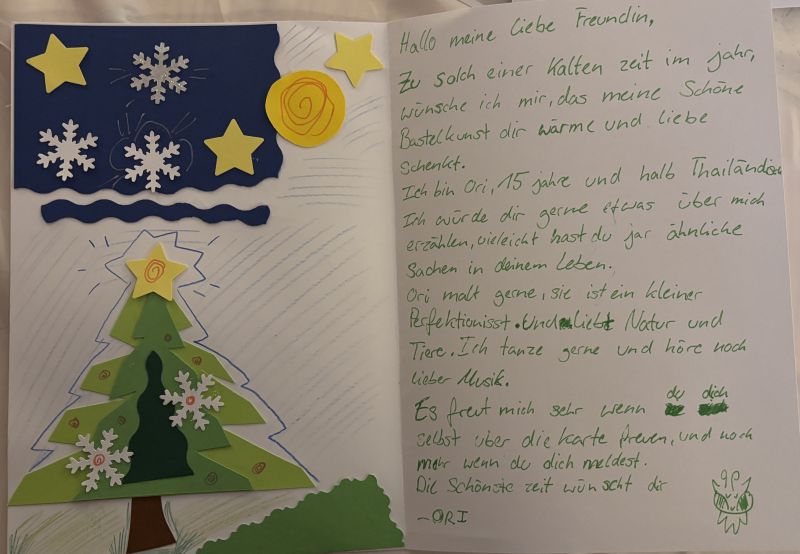 Hallo meine liebe Freundin,
Zu solch einer Kalten zeit im jahr,
wünsche ich mir, das meine Schöne
Bastelkunst dir wärme und liebe
schenkt.
Ich bin Ori, 15 jahre und halb Thailändisch
Ich würde dir gerne etwas über mich
erzählen, vieleicht hast du jar ähnliche
Sachen in deinem Leben.
Ori malt gerne, sie ist ein kleiner
Perfektionisst. Und liebt Natur und
Tiere. Ich tanze gerne und höre noch
lieber Musik.
Es freut mich sehr wenn du dich
selbst über die Karte freuen, und noch
mehr wenn du dich meldest.
Die Schönste zeit wünscht dir
-ORI